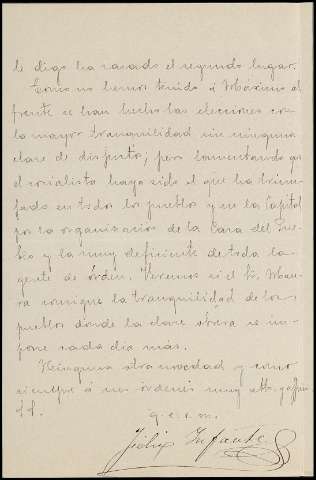 le digo ha sacado el segundo lugar.
Como no hemos tenido á Máximo al
frente se han hecho las elecciones con
la mayor tranquilidad sin ninguna
clase de disgusto, pero lamentando que
el socialista haya sido el que ha triun-
fado en todos los pueblos y en la Capital
por la organización de la Casa del Pue-
blo y la muy deficiente de toda la
gente de órden. Veremos si el Sr. Mau-
ra consigue la tranquilidad de los
pueblos donde la clase obrera se im-
pone cada dia más.
Ninguna otra novedad y como
siempre á sus órdenes muy atto. y affmo.
S.S.
q. e. s. m.
Félix Infante